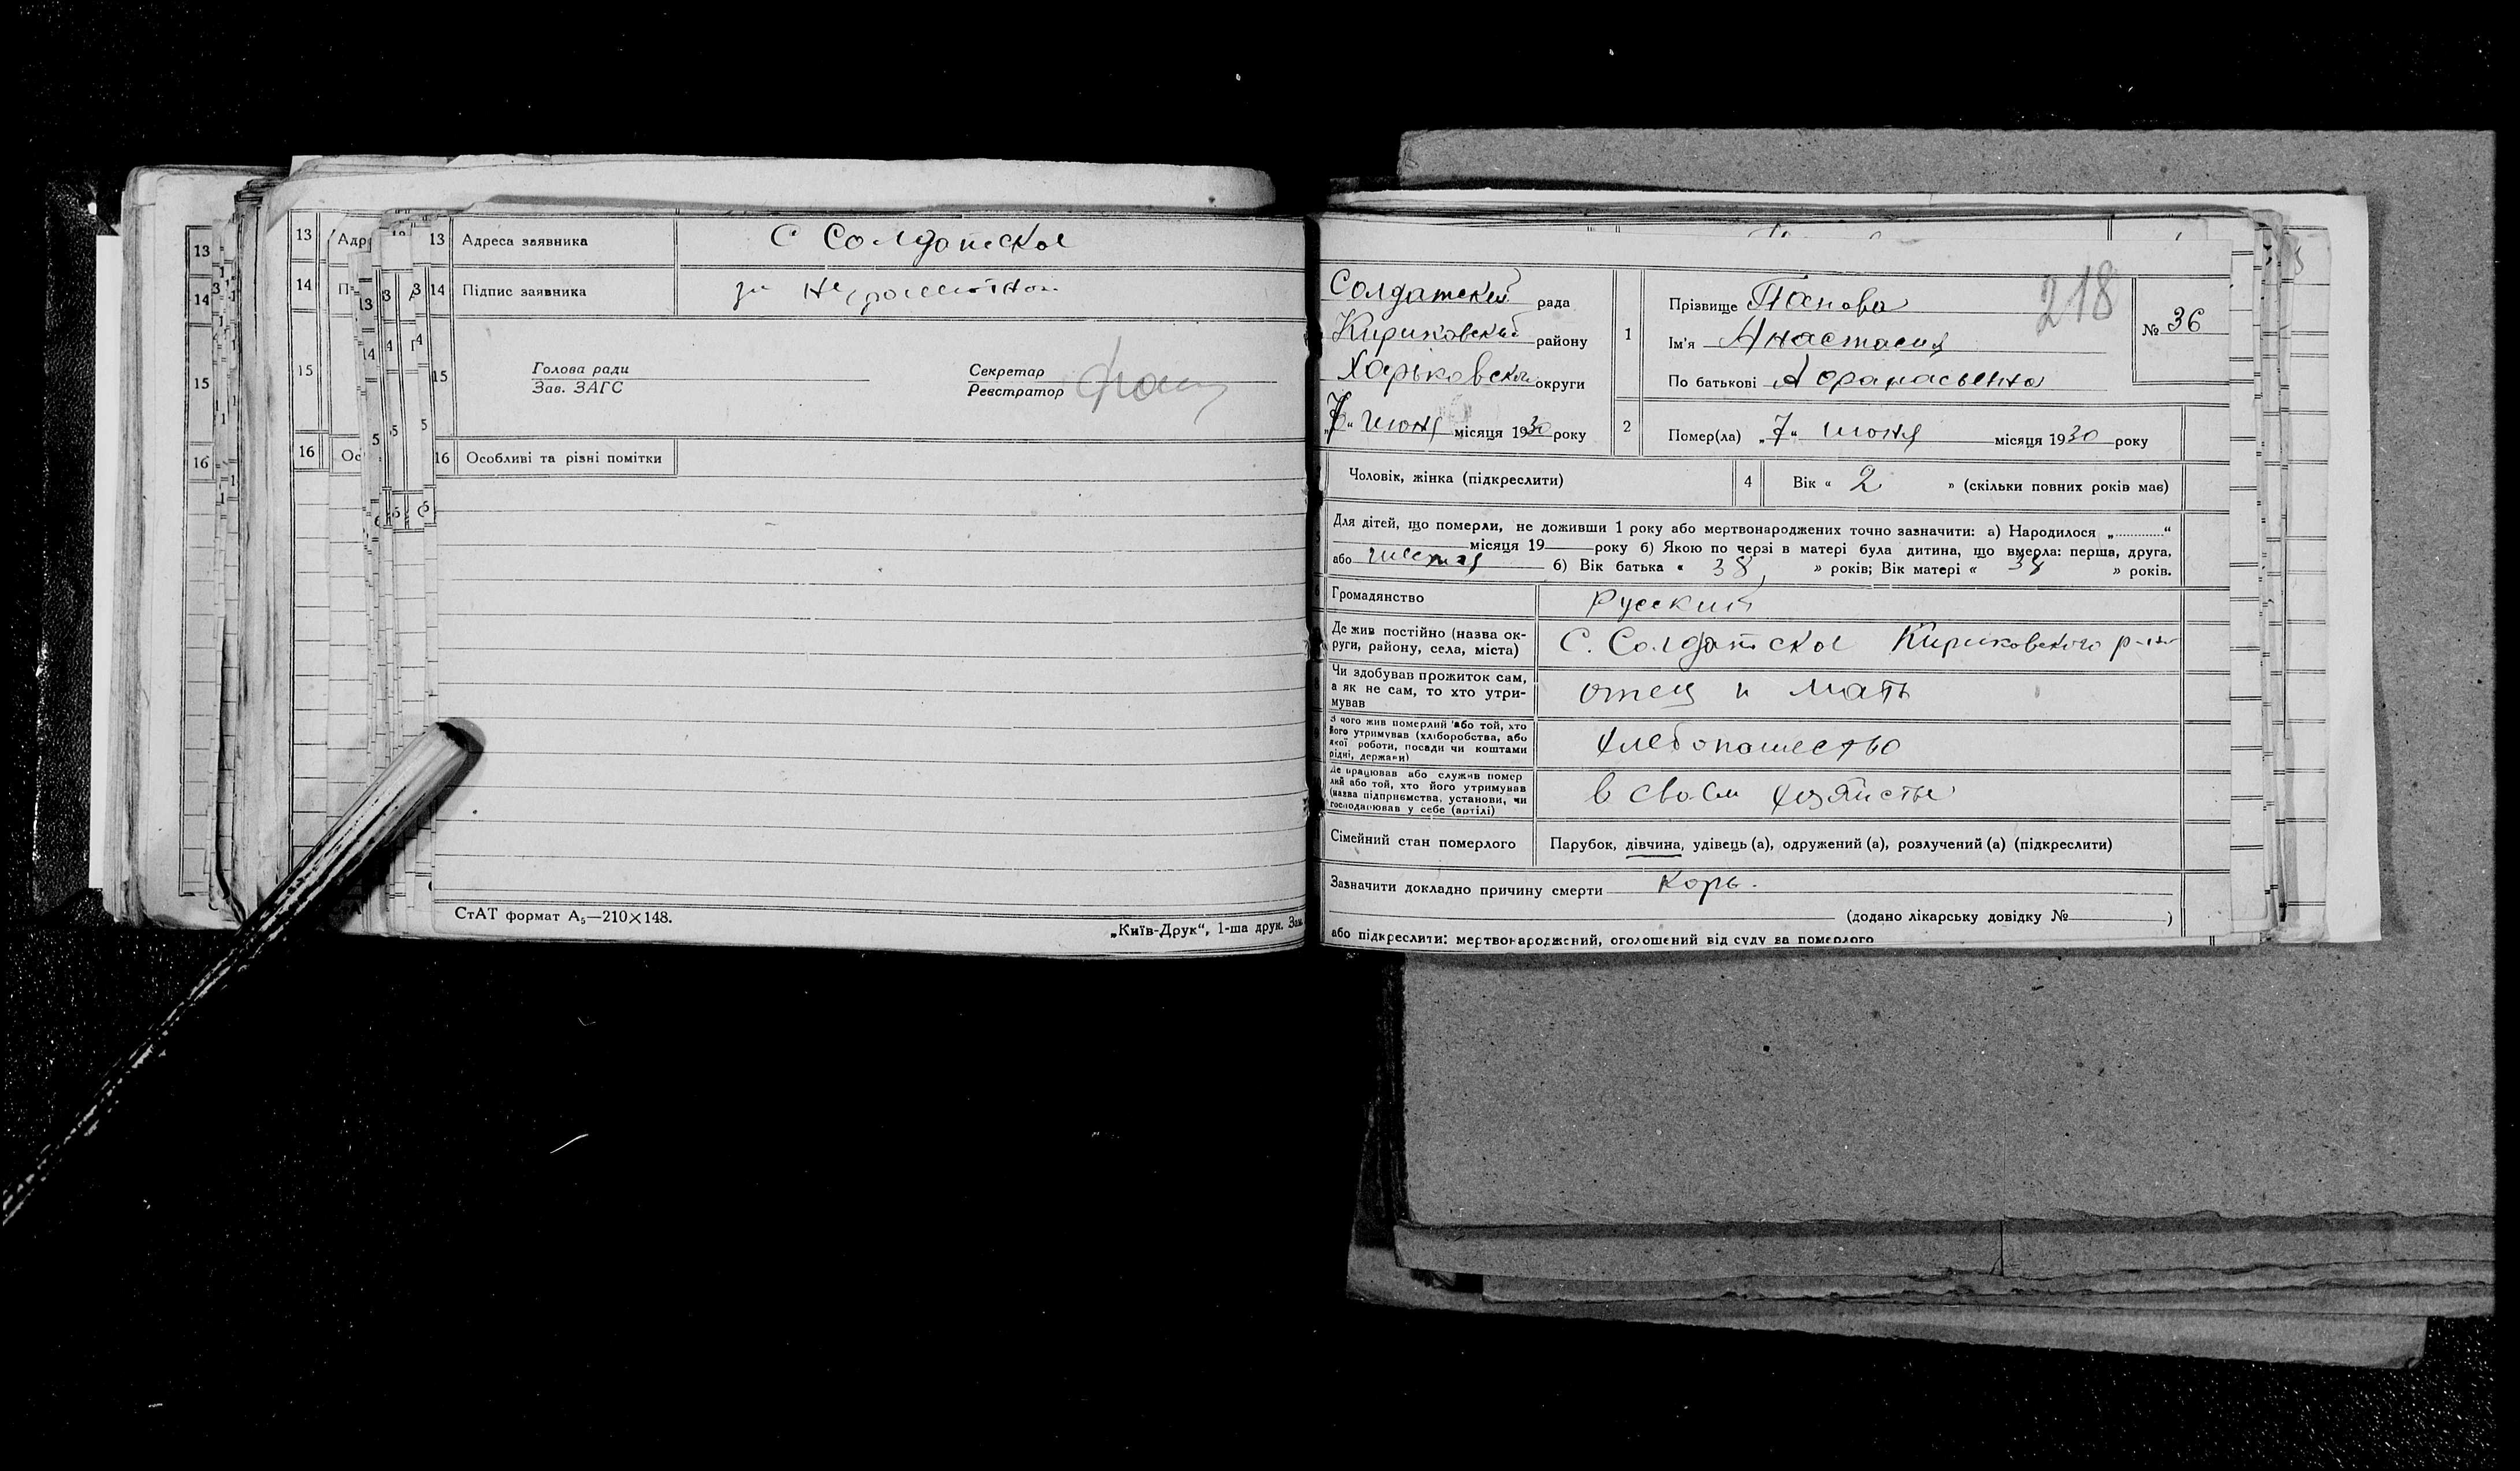 13 Адреса заявника С Солдатское
14 Підпис заявника за
15 Голова ради Секретар
Зав. ЗАГС Реєстратор
16 Особливі та різні помітки
СтАТ формат А₅—210×148.
„Київ-Друк“, 1-ша друк. Зам.
218
Солдатский рада
Кириковский району
Харьковской округи
„7“ июня місяця 1930 року
1 Прізвище Попова
Ім'я Анастасия
По батькові Афанасьевна
№ 36
2 Помер(ла) „7“ июня місяця 1930 року
Чоловік, жінка (підкреслити)
4 Вік « 2 » (скільки повних років має)
Для дітей, що померли, не доживши 1 року або мертвонароджених точно зазначити: а) Народилося „ “
місяця 19 року б) Якою по черзі в матері була дитина, що вмерла: перша, друга,
або шестая б) Вік батька « 38 » років; Вік матері « » років.
Громадянство русский
Де жив постійно (назва ок-
руги, району, села, міста) С. Солдатское Кириковского р-на
Чи здобував прожиток сам,
а як не сам, то хто утри-
мував отец и мать
З чого жив померлий або той, хто
його утримував (хліборобства, або
якої роботи, посади чи коштами
рідні, держави) хлебопашество
Де працював або служив помер
лий або той, хто його утримував
(назва підприємства, установи, чи
господарював у себе (артілі) в своем хозяйстве
Сімейний стан померлого Парубок, дівчина, удівець (а), одружений (а), розлучений (а) (підкреслити)
Зазначити докладно причину смерти Корь.
(додано лікарську довідку № )
або підкреслити: мертвонароджений, оголошений від суду за померлого